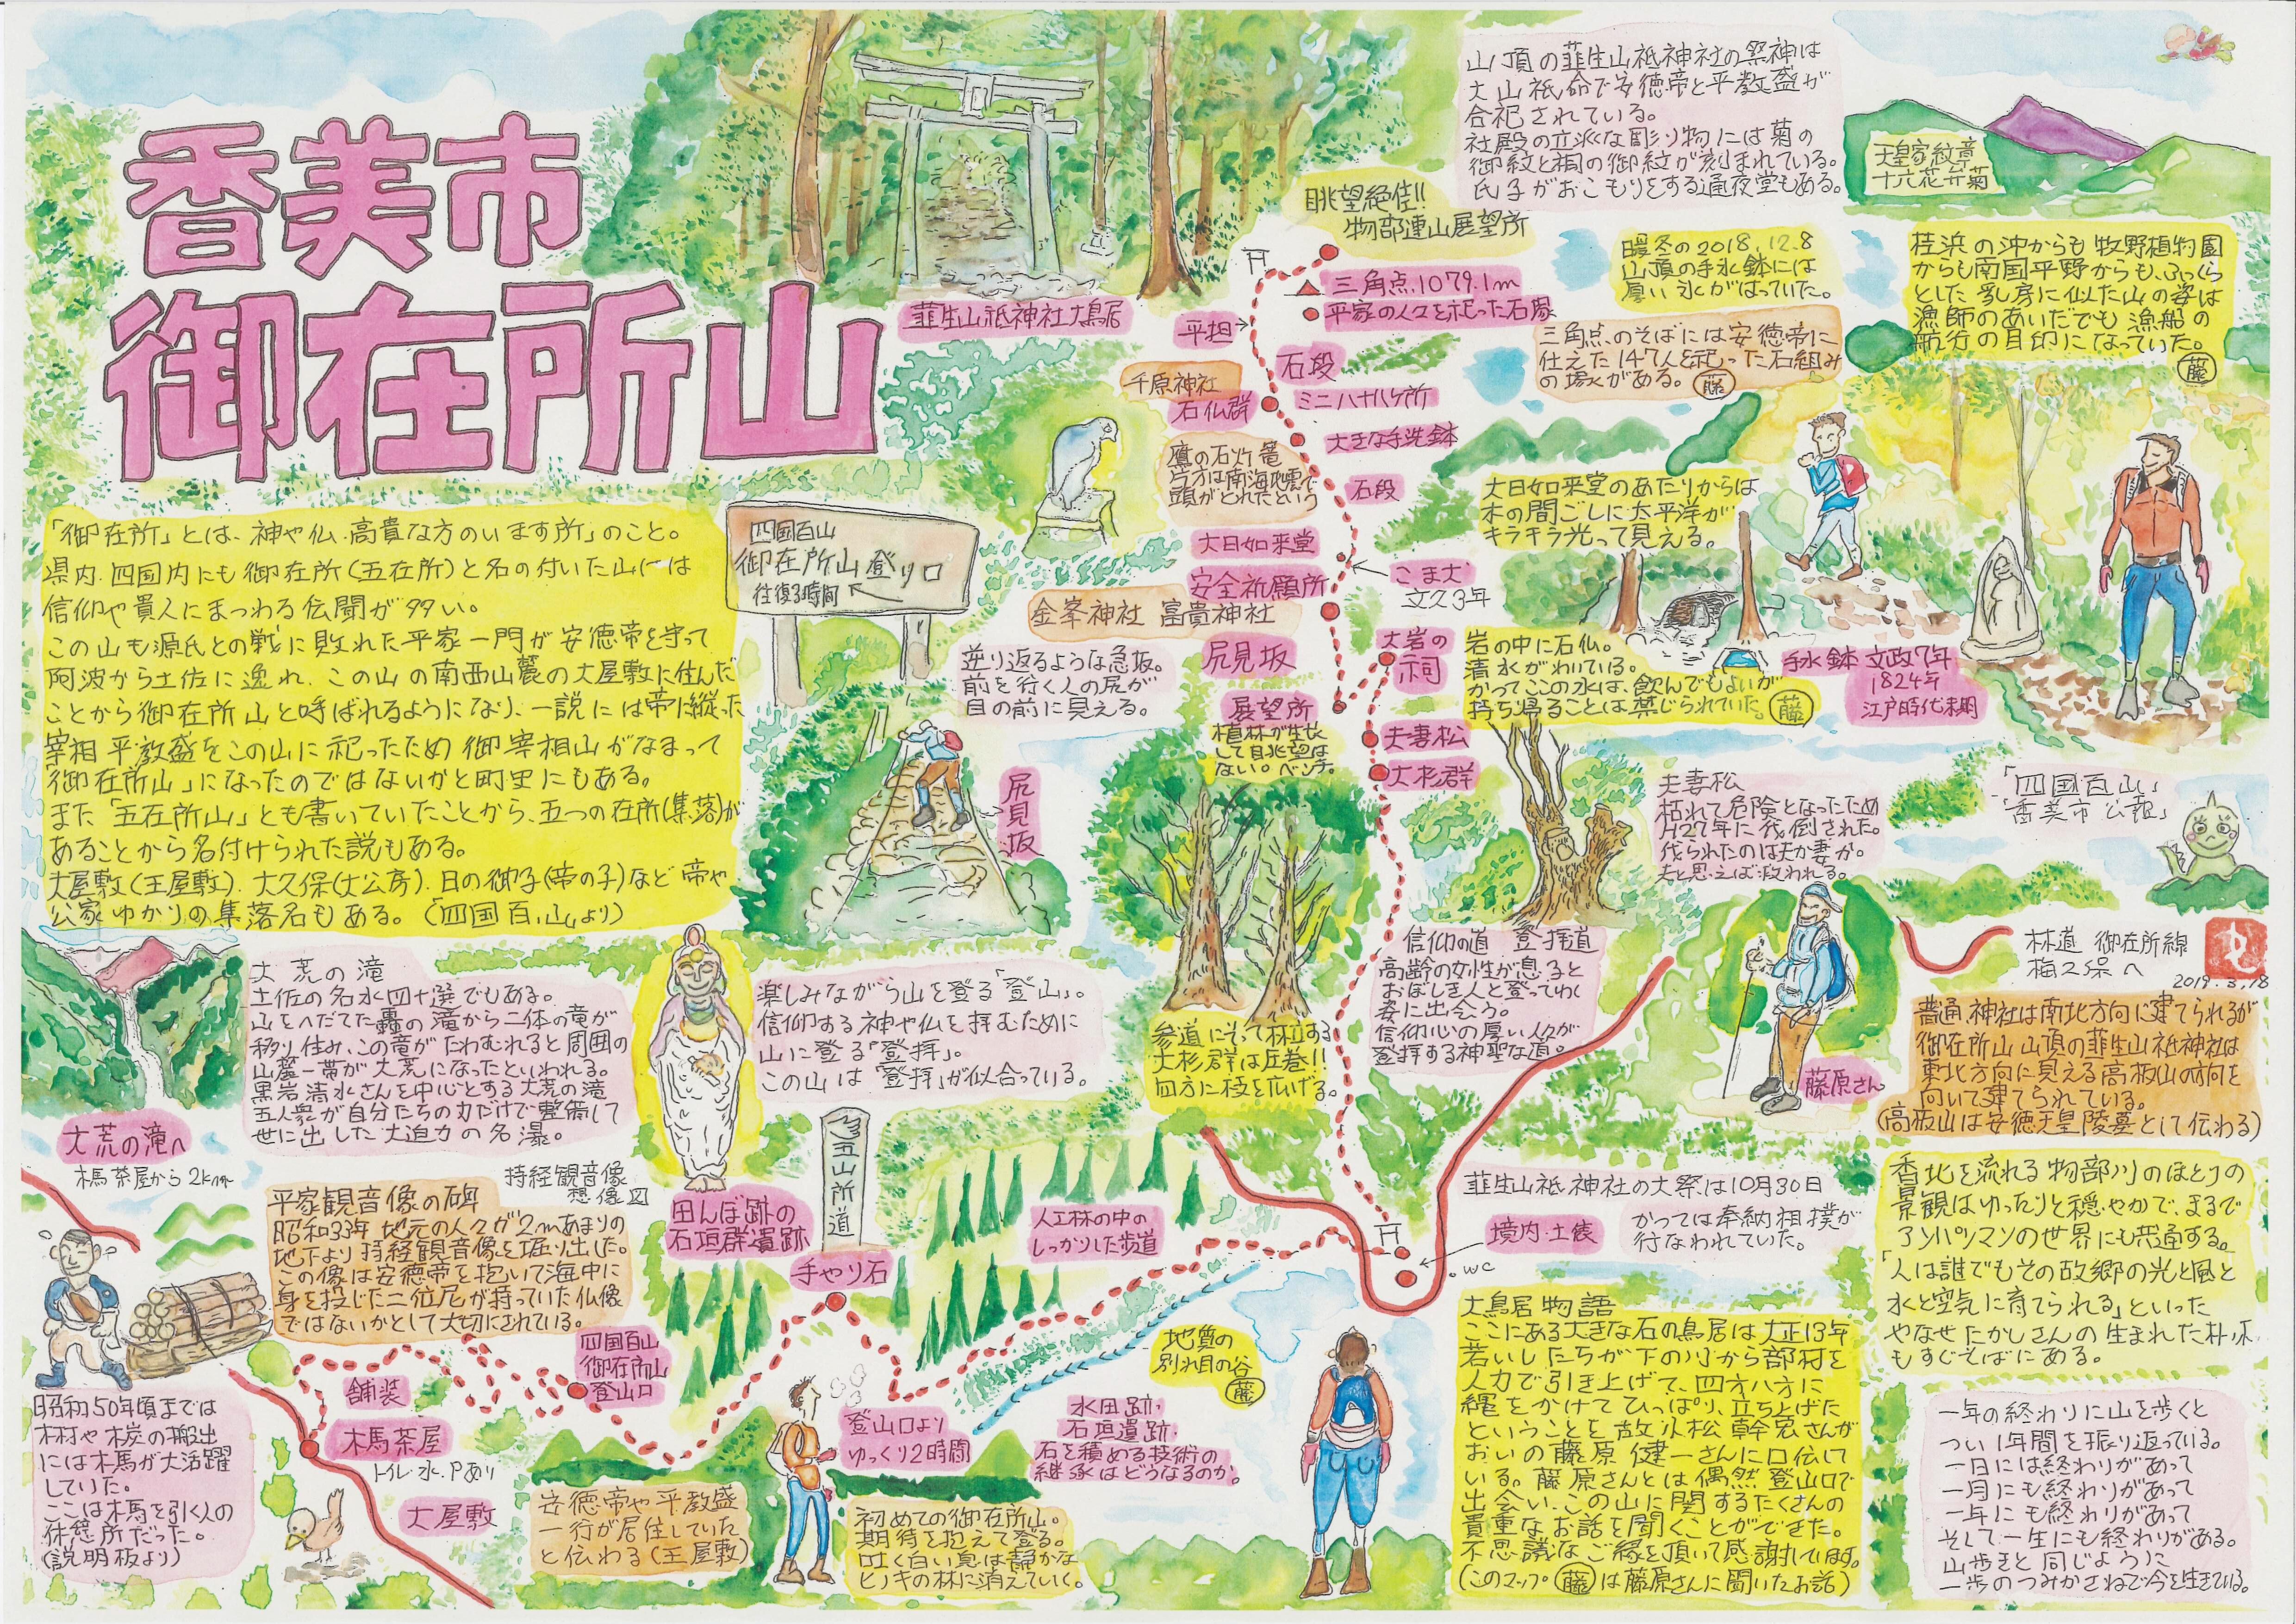 香美市
御在所山
「御在所」とは、神や仏、高貴な方のいます所」のこと。
県内、四国内にも御在所(五在所)と名の付いた山には
信仰や貴人にまつわる伝聞が多い。
この山も源氏との戦に敗れた平家一門が安徳帝を守って
阿波から土佐に逸れ、この山の南西山麓の大屋敷に住んだ
ことから御在所山と呼ばれるようになり、一説には帝に縦った
宰相平教盛をこの山に祀ったため御宰相山がなまって
御在所山」になったのではないかと町史にもある。
また「五在所山」とも書いていたことから、五つの在所(集落)が
あることから名付けられた説もある。
大屋敷(王屋敷)、大久保(大公房)、日の御子(帝の子)など帝や
公家ゆかりの集落名もある。(「四国百山」より)
韮生山祇神社大鳥居
山頂の韮生山祇神社の祭神は
大山祇命で安徳帝と平教盛が
合祀されている。
社殿の立派な彫り物には菊の
御紋と桐の御紋が刻まれている。
氏子がおこもりをする通夜堂もある。
天皇家紋章
十六花弁菊
眺望絶佳!!
物部連山展望所
三角点1079.1m
平家の人々を祀った石塚
平担
暖冬の2018.12.8
山頂の手水鉢には
厚い氷がはっていた。
桂浜の沖からも牧野植物園
からも南国平野からも、ふっくら
とした乳房に似た山の姿は
漁師のあいだでも漁船の
航行の目印になっていた。
藤
三角点のそばには安徳帝に
仕えた147人を祀った石組み
の塚がある。藤
石段
千原神社
石仏群
ミニ八十八ヶ所
大きな手洗鉢
鷹の石灯篭
片方は南海地震で
頭がとれたという
石段
大日如来堂のあたりからは
木の間ごしに太平洋が
キラキラ光って見える。
大日如来堂
安全祈願所
こま犬
文久3年
金峯神社 富貴神社
四国百山
御在所山登り口
往復3時間
逆り返るような急坂。
前を行く人の尻が
目の前に見える。
尻見坂
尻見坂
大岩の
祠
岩の中に石仏。
清水がわいている。
かってここの水は、飲んでもよいが
持ち帰ることは禁じられていた。藤
手水鉢 文政7年
1824年
江戸時代末期
展望所
植林が生長
して眺望は
ない。ベンチ。
夫妻松
大杉群
夫妻松
朽れて危険となったため
H27年に伐倒された。
伐られたのは夫か妻か。
夫と思えば救われる。
「四国百山」
「香美市公報」
林道 御在所線
梅久保へ
2019.3.18
大荒の滝
土佐の名水四十選でもある。
山をへだてた轟の滝から二体の竜が
移り住み、この竜がたわむれると周囲の
山麓一帯が大荒になったといわれる。
黒岩清水さんを中心とする大荒の滝
五人衆が自分たちの力だけで整備して
世に出した大迫力の名瀑。
大荒の滝へ
木馬茶屋から2km
楽しみながら山を登る「登山」。
信仰する神や仏を拝むために
山に登る「登拝」。
この山は「登拝」が似合っている。
持経観音像
想像図
参道にそって林立する
大杉群は圧巻!!
四方に枝を広げる。
信仰の道 登拝道
高齢の女性が息子と
おぼしき人と登ってゆく
姿に出会う。
信仰心の厚い人々が
登拝する神聖な道。
藤原さん
普通、神社は南北方向に建てられるが
御在所山山頂の韮生山祇神社は
東北方向に見える高板山の方向を
向いて建てられている。
(高板山は安徳天皇陵墓として伝わる)
平家観音像の碑
昭和33年 地元の人々が2mあまりの
地下より持経観音像を堀り出した。
この像は安徳帝を抱いて海中に
身を投じた二位尼が持っていた仏像
ではないかとして大切にされている。
田んぼ跡の
石垣群遺跡
五山所道
手やり石
人工林の中の
しっかりした歩道
韮生山祇神社の大祭は10月30日
境内・土俵
かつては奉納相撲が
行なわれていた。
WC
香北を流れる物部川のほとりの
景観はゆったりと穏やかで、まるで
アンパンマンの世界にも共通する。
「人は誰でもその故郷の光と風と
水と空気に育てられる」といった
やなせたかしさんの生まれた朴ノ木
もすぐそばにある。
四国百山
御在所山
登山口
舗装
木馬茶屋
トイレ・水・Pあり
大屋敷
昭和50年頃までは
木材や木炭の搬出
には木馬が大活躍
していた。
ここは木馬を引く人の
休憩所だった。
(説明板より)
安徳帝や平教盛
一行が居住していた
と伝わる(王屋敷)
登山口より
ゆっくり2時間
初めての御在所山。
期待を抱えて登る。
吐く白い息は静かな
ヒノキの林に消えていく。
地質の
別れ目の谷
藤
水田跡・
石垣遺跡・
石を積める技術の
継承はどうなるのか。
大鳥居物語
ここにある大きな石の鳥居は大正13年
若いしたちが下の川から部村を
人力で引き上げて、四方八方に
縄をかけてひっぱり、立ち上げた
ということを故小松幹宏さんが
おいの藤原健一さんに口伝して
いる。藤原さんとは偶然登山口で
出会い、この山に関するたくさんの
貴重なお話を聞くことができた。
不思議なご縁を頂いて感謝しています。
(このマップ藤は藤原さんに聞いたお話)
一年の終わりに山を歩くと
つい1年間を振り返っている。
一日には終わりがあって
一月にも終わりがあって
一年にも終わりがあって
そして一生にも終わりがある。
山歩きと同じように
一歩のつみかさねで今を生きている。